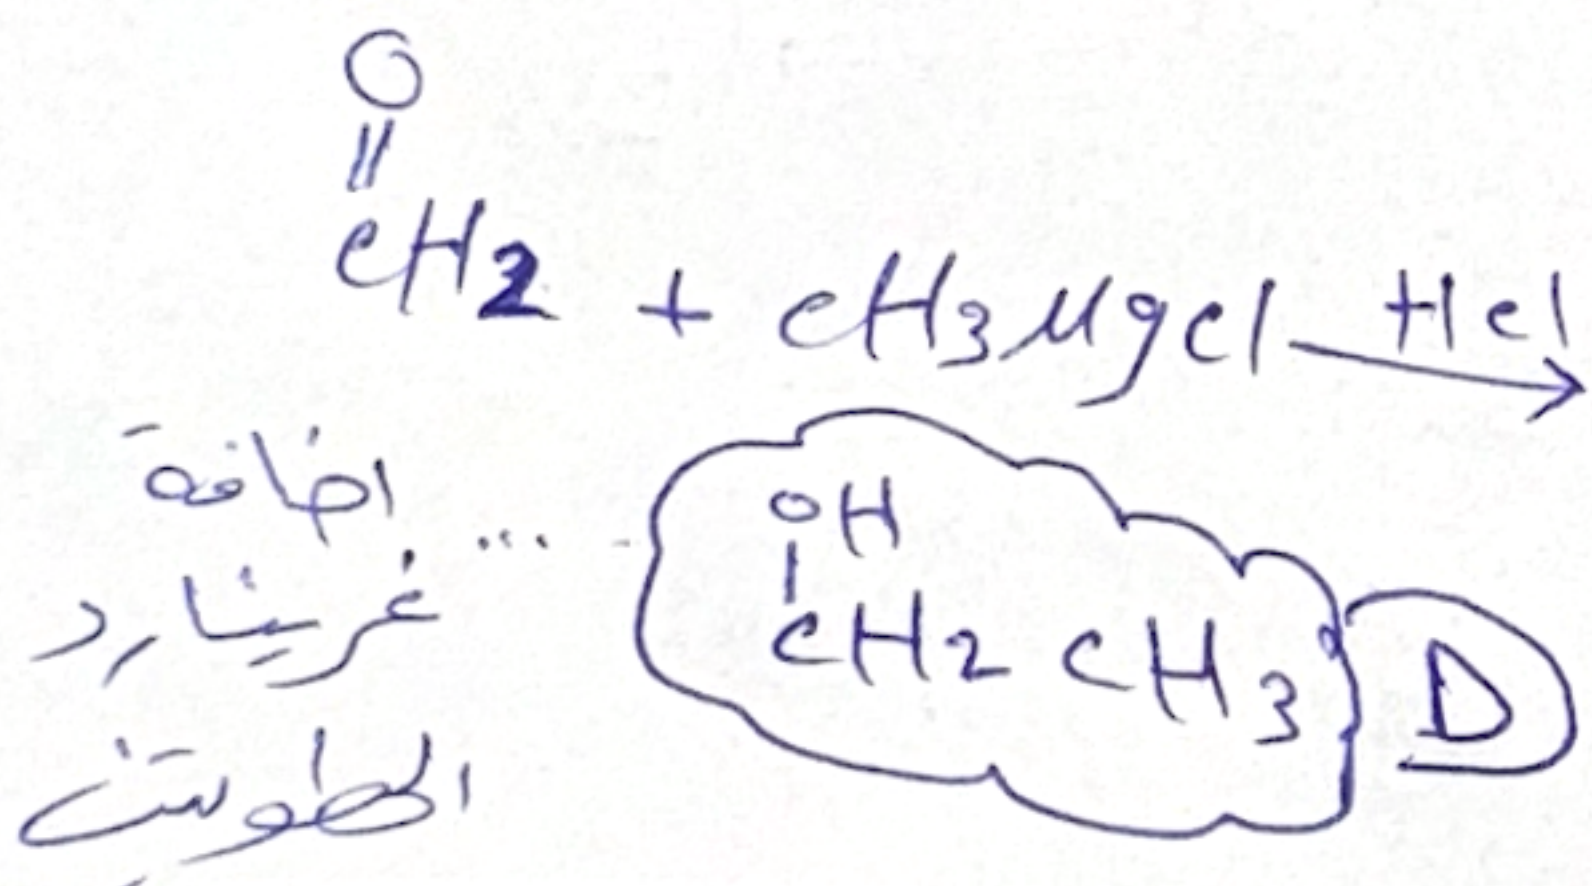 O
||
CH2 + CH3MgCl HCl →
اضافة
غرينارد ...
OH
|
CH2 CH3 D